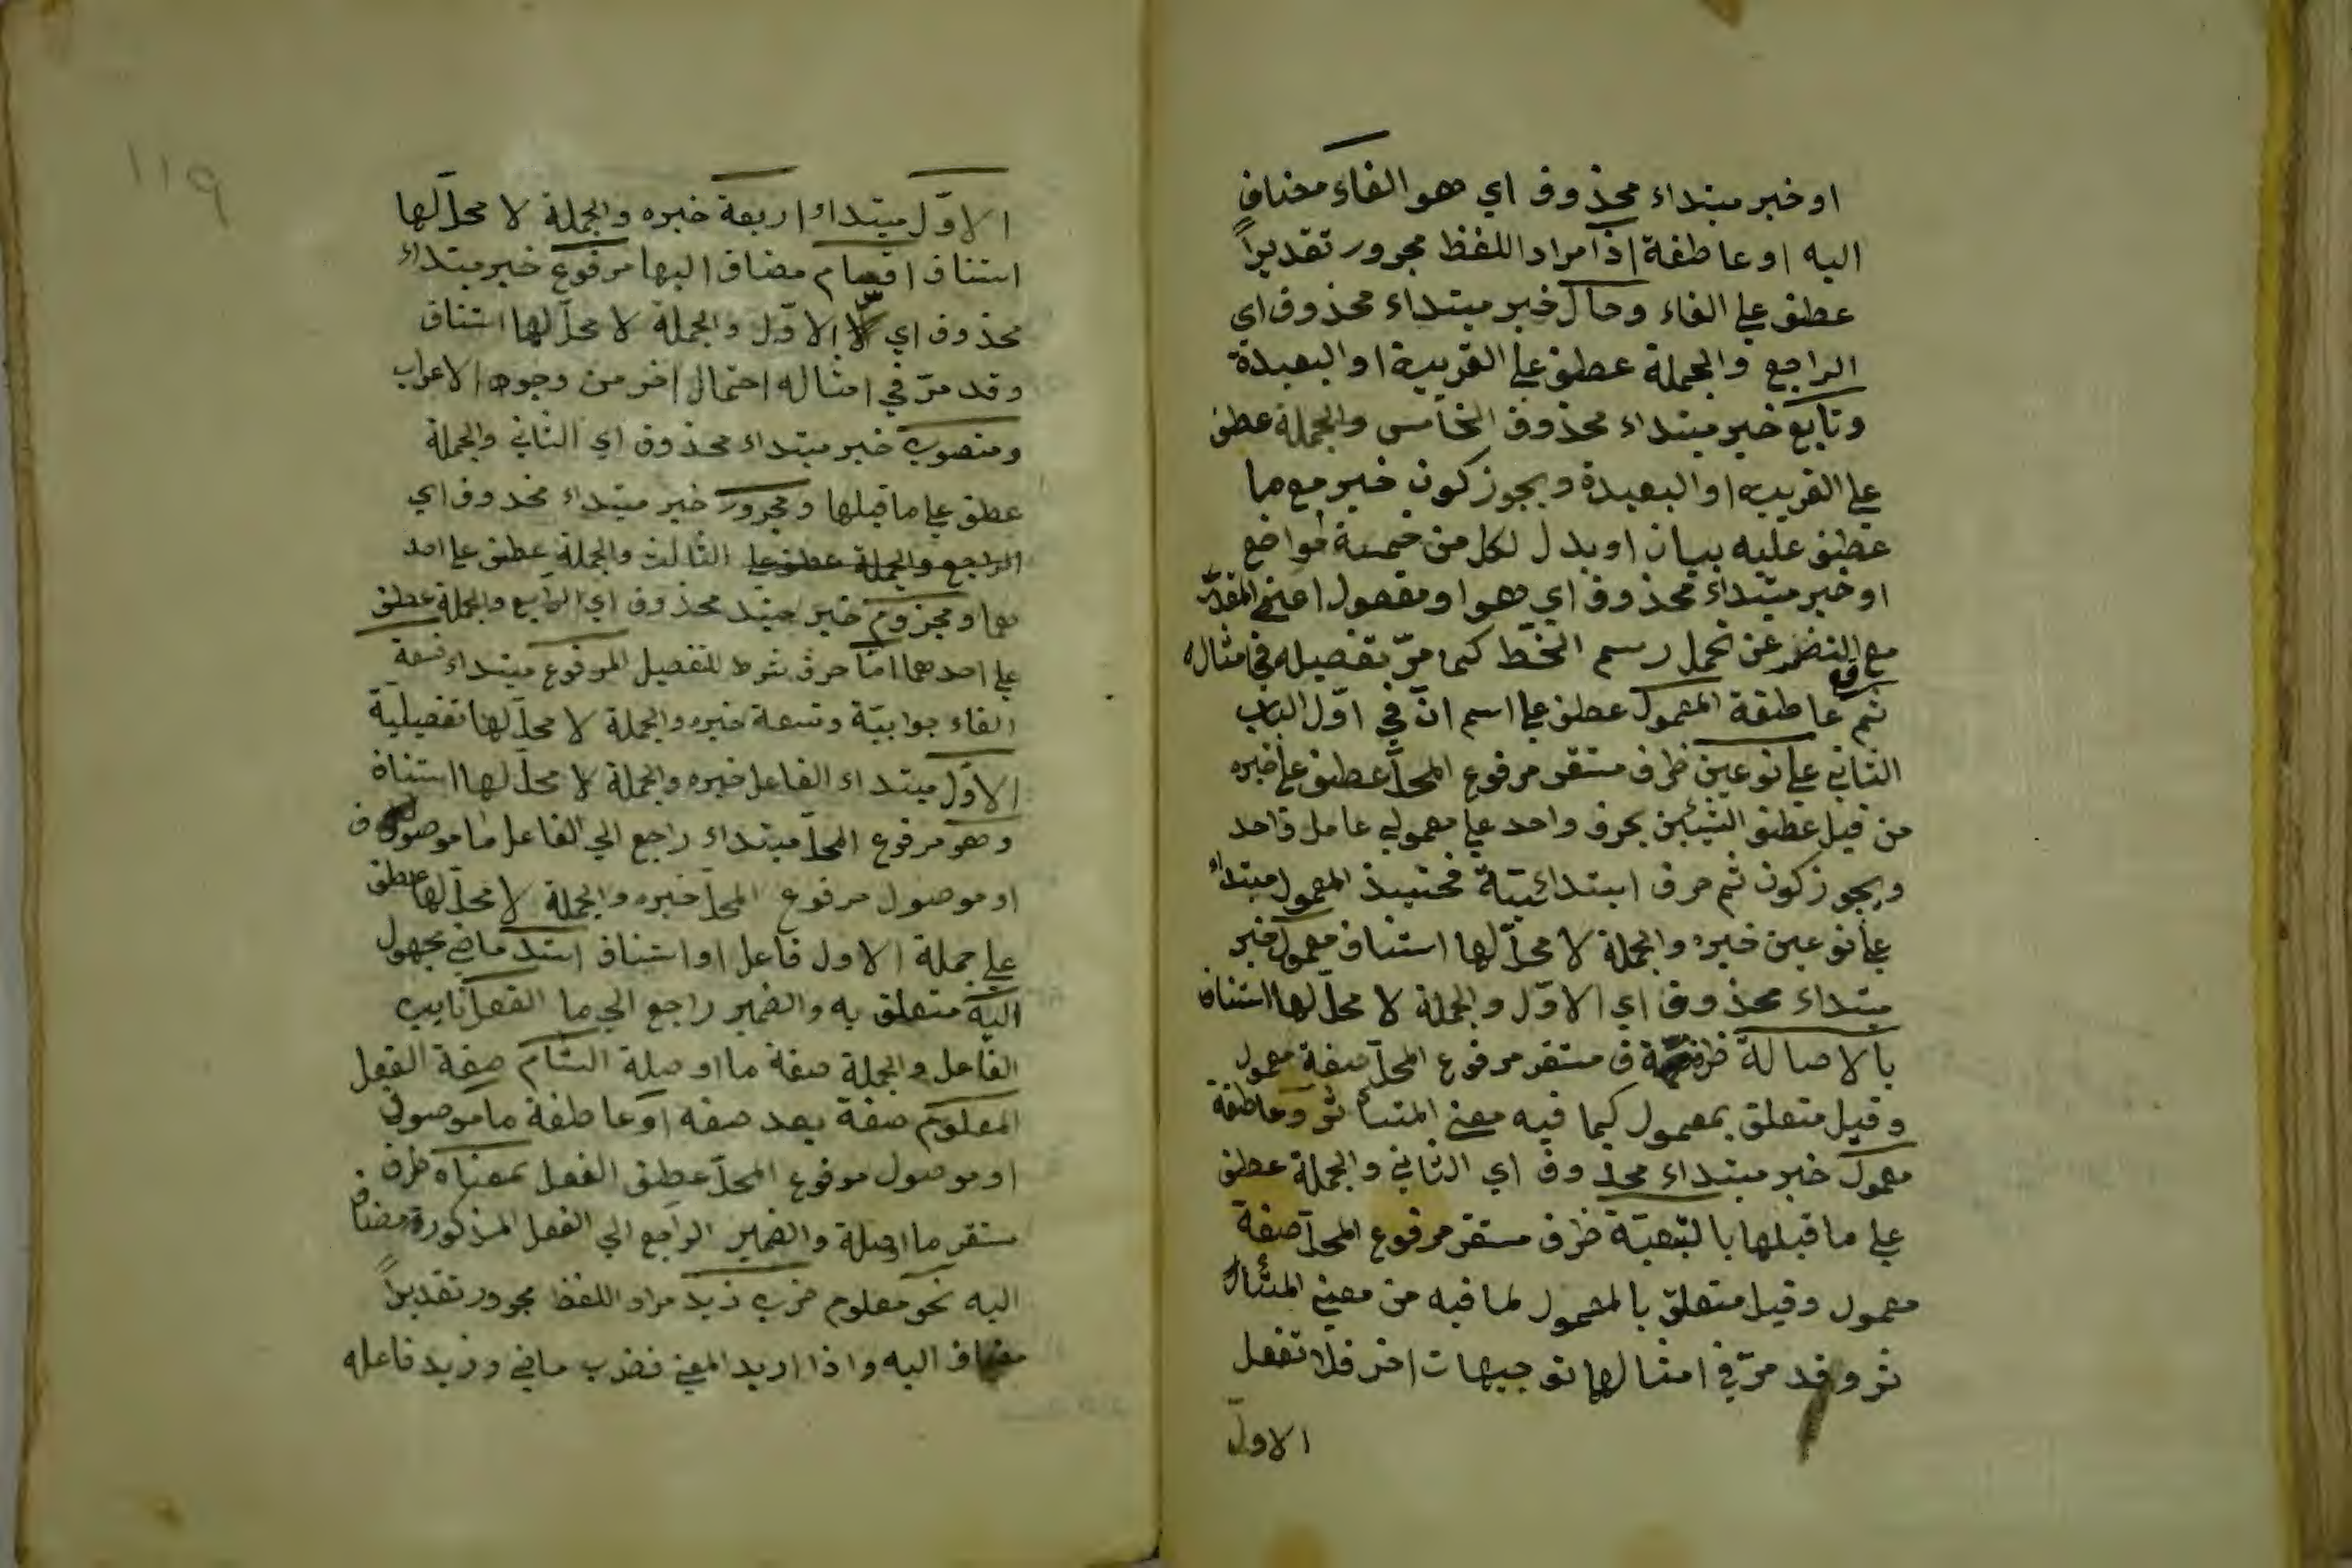 او خبر مبتداء محذوف اي هو الفاء مضاف
اليه او عاطفة اذا مراد اللفظ مجرور تقديراً
عطف علي الفاء وحال خبر مبتداء محذوف اي
الرابع والجملة عطف علي القريبة او البعيدة
وتابع خبر مبتداء محذوف الخامس والجملة عطف
علي القريبة او البعيدة ويجوز كون خبر مع ما
عطف عليه بيان او بدل لكل من خمسة مواضع
او خبر مبتداء محذوف اي هو او مفعول اعني المقدر
مع عن تحمل رسم الخط كما مرّ تفصيله في مثاله
ثم عاطفة المعمول عطف علي اسم انّ في اوّل الباب
الثاني علي نوعين ظرف مستقر مرفوع المحلّ عطف علي خبره
من قبيل عطف الشيئين بحرف واحد علي معمولي عامل واحد
ويجوز كون ثم حرف ابتدائيّة فحينئذ المعمول مبتداء
علي نوعين خبره والجملة لا محلّ لها استناف معمول خبر
مبتداء محذوف اي الاوّل والجملة لا محلّ لها استناف
بالاصالة ظرف مستقر مرفوع المحلّ صفة معمول
وقيل متعلق بمعمول كما فيه معني المتأثر و عاطفة
معمول خبر مبتداء محذوف اي الثاني والجملة عطف
علي ما قبلها بالتبعيّة ظرف مستقر مرفوع المحلّ صفة
معمول وقيل متعلق بالمعمول لما فيه من معني المتأ
ثر وقد مرّ في امثالها توجيهات اخر فلا تغفل
الاوّل
١١٩
الاوّل مبتداء اربعة خبره والجملة لا محلّ لها
استناف اقسام مضاف اليها مرفوع خبر مبتداء
محذوف اي الاوّل والجملة لا محلّ لها استناف
وقد مرّ في امثاله احتمال اخر من وجوه الاعراب
ومنصوب خبر مبتداء محذوف اي الثاني والجملة
عطف علي ما قبلها ومجرور خبر مبتداء محذوف اي
الرابع والجملة عطف علي الثالث والجملة عطف علي احد
هما ومجزوم خبر مبتد محذوف اي الرابع والجملة عطف
علي احدهما امّا حرف شرط للتفصيل المرفوع مبتداء فتسعة
الفاء جوابيّة وتسعة خبره والجملة لا محلّ لها تفصيليّة
الاوّل مبتداء الفاعل خبره والجملة لا محلّ لها استناف
وهو مرفوع المحلّ مبتداء راجع الي الفاعل ما موصوف
او موصول مرفوع المحلّ خبره والجملة لا محلّ لها عطف
علي جملة الاول فاعل او استناف اسند ماضي مجهول
اليه متعلق به والضمير راجع الي ما الفعل نايب
الفاعل والجملة صفة ما او صلة التام صفة الفعل
المعلوم صفة بعد صفه او عاطفة ما موصوف
او موصول مرفوع المحلّ عطف الفعل بمعناه ظرف
مستقر ما او صلة والضمير الراجع الي الفعل المذكورة مضاف
اليه نحو معلوم ضرب زيد مراد اللفظ مجرور تقديراً
مضاف اليه واذا اريد المعني فضرب ماضي وزيد فاعله